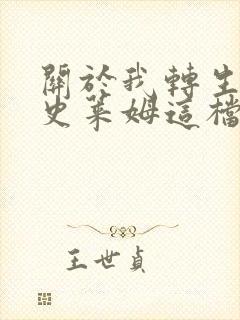 關於我轉生
史萊姆這檔
王世貞